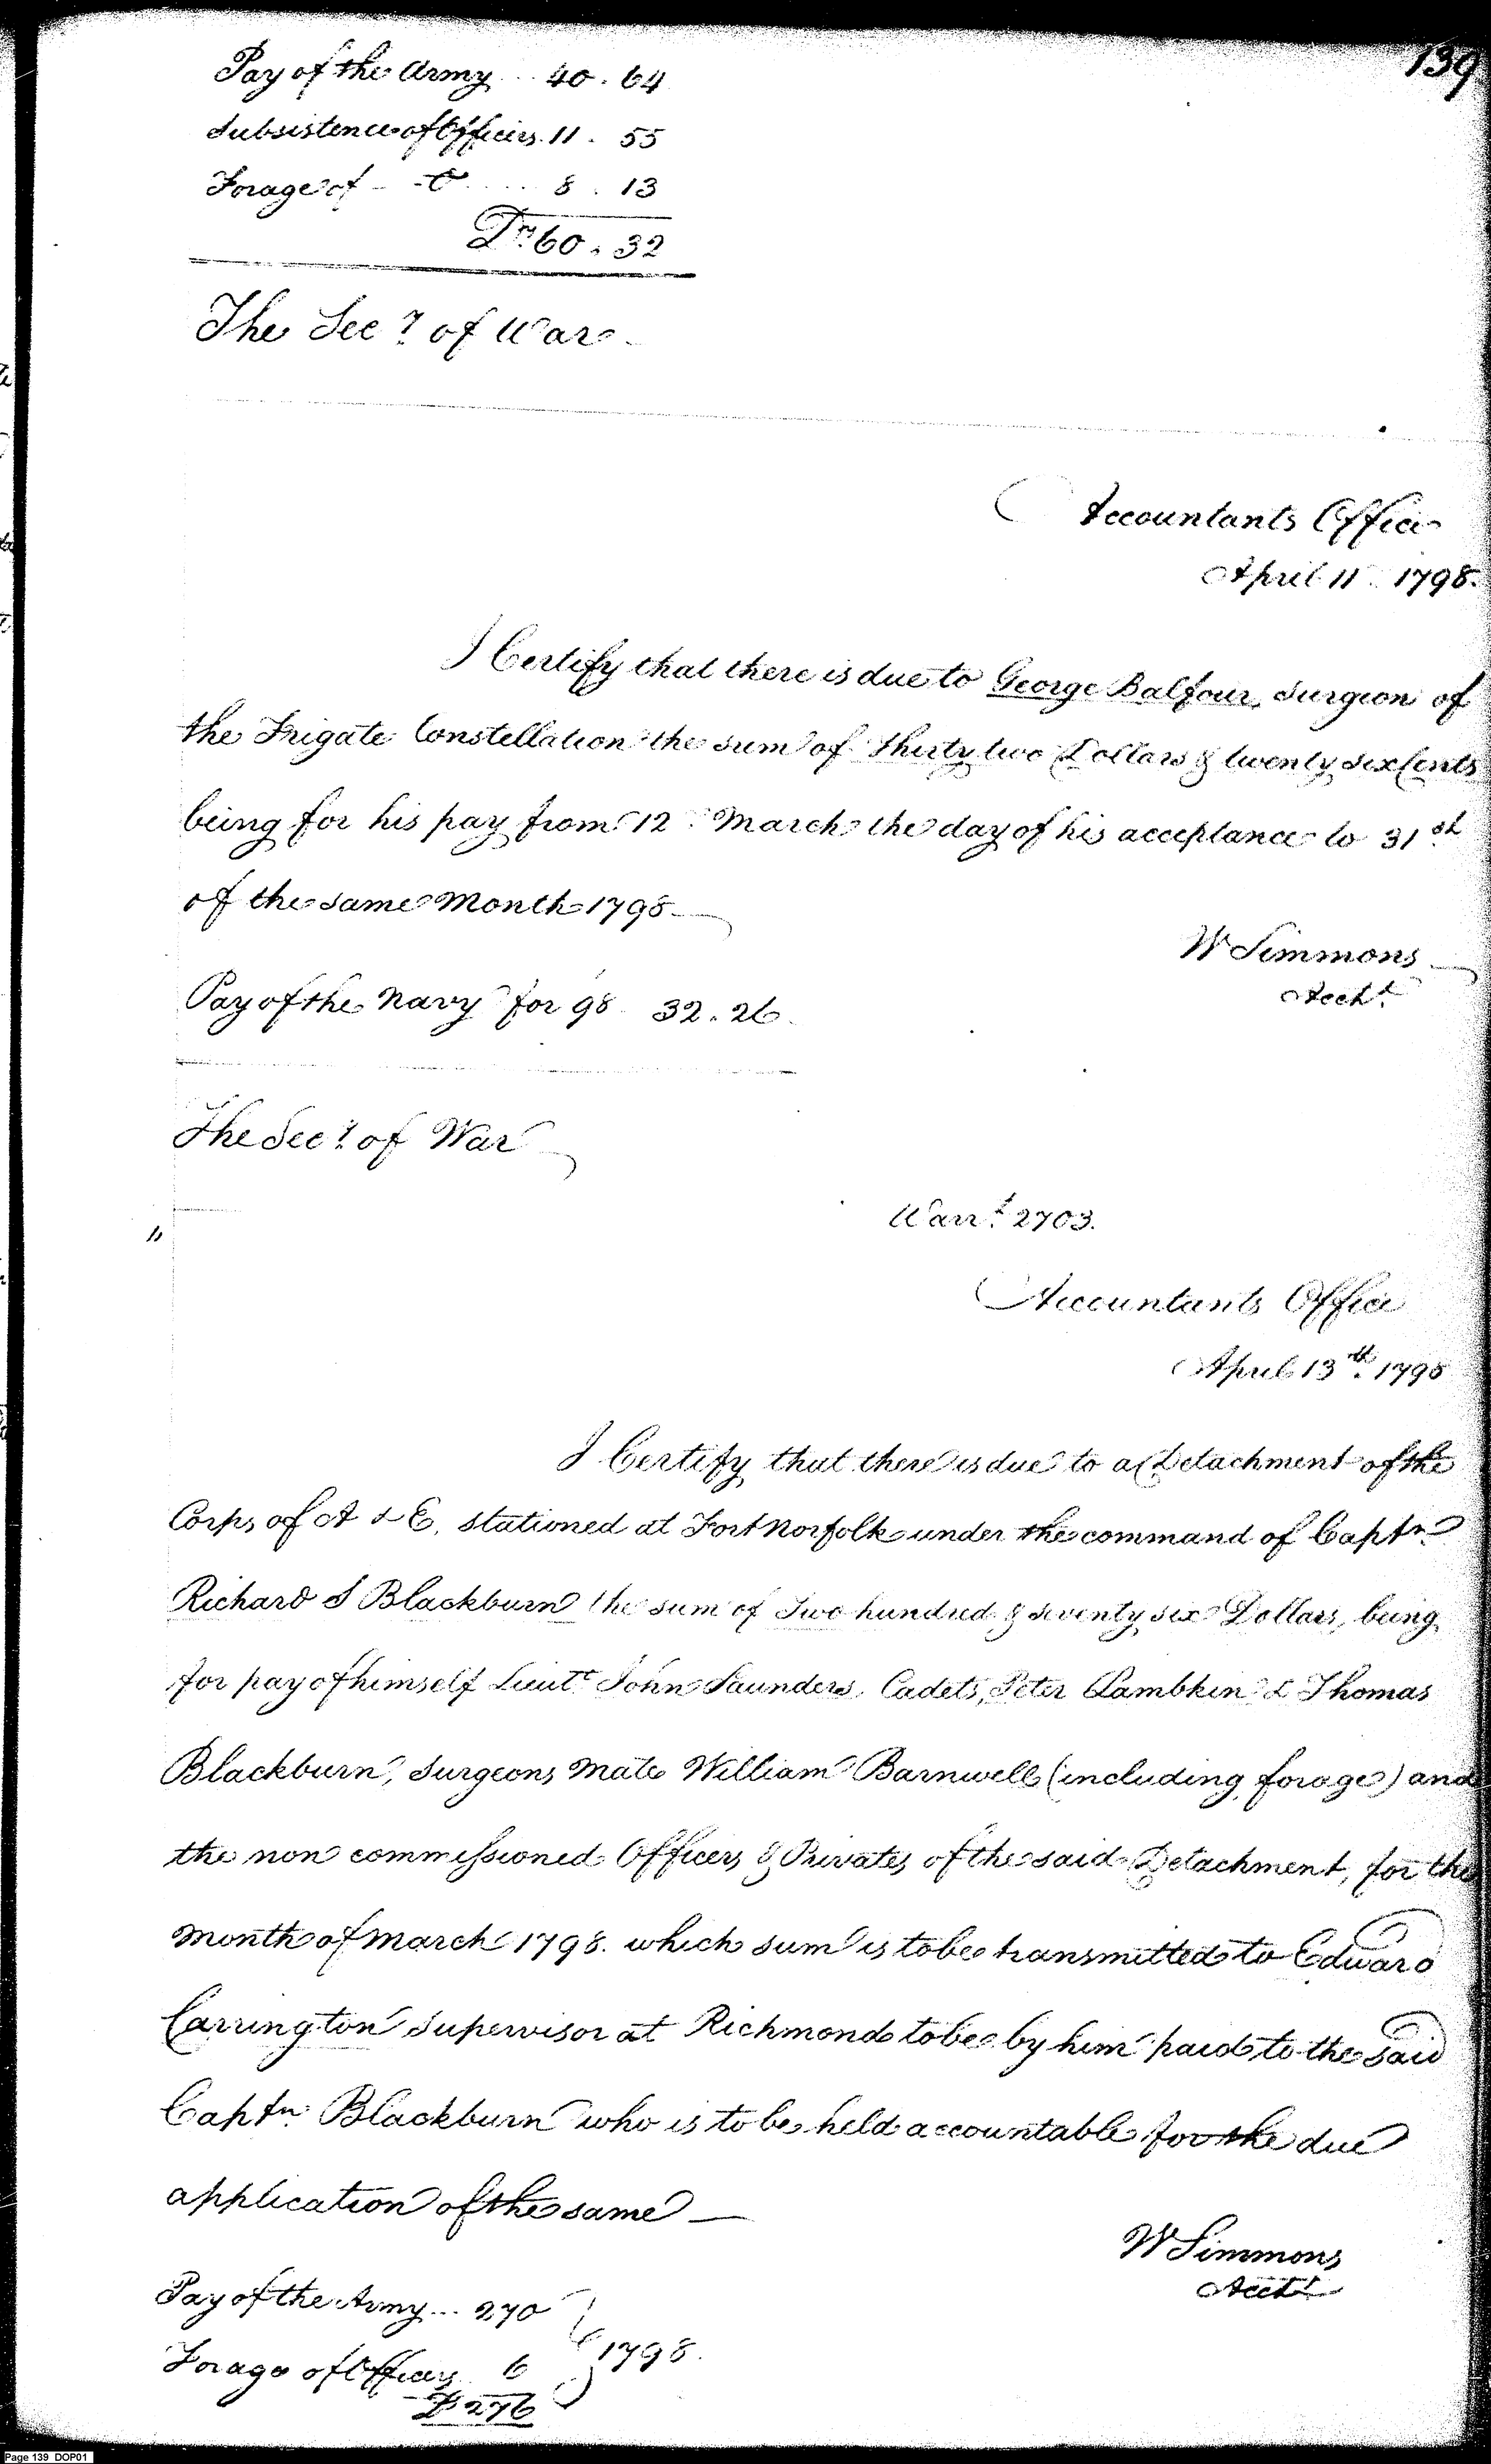 139
Pay of the Army ... 40.64
Subsistence of Officers. 11.55
Forage of - - Do .... 8.13
Drs. 60.32
The Secy. of War
Accountants Office
April 11th 1798.
I Certify that there is due to George Balfour, Surgeon of
the Frigate Constellation the sum of thirty two Dollars & twenty six Cents
being for his pay from 12th March the day of his acceptance to 31st
of the same Month 1798
W Simmons
Acct.
Pay of the Navy for 98 32.26
The Secy. of War
Warrt. 2703.
Accountants Office
April 13th. 1798
I Certify that there is due to a Detachment of the
Corps of A & E. stationed at Fort Norfolk under the command of Captn.
Richard S Blackburn the sum of Two hundred & seventy six Dollars, being
for pay of himself Lieutt John Saunders, Cadets, Peter Lambkin & Thomas
Blackburn, Surgeons Mate William Barnwell (including forage) and
the non commissioned Officers & Privates of the said Detachment, for the
Month of March 1798. which sum is to be transmitted to Edward
Carrington Supervisor at Richmond to be by him paid to the said
Captn. Blackburn who is to be held accountable for the due
application of the same —
W Simmons
Acctt
Pay of the Army ... 270
1798.
Forage of Officers 6
D 276
Page 139 DOP01